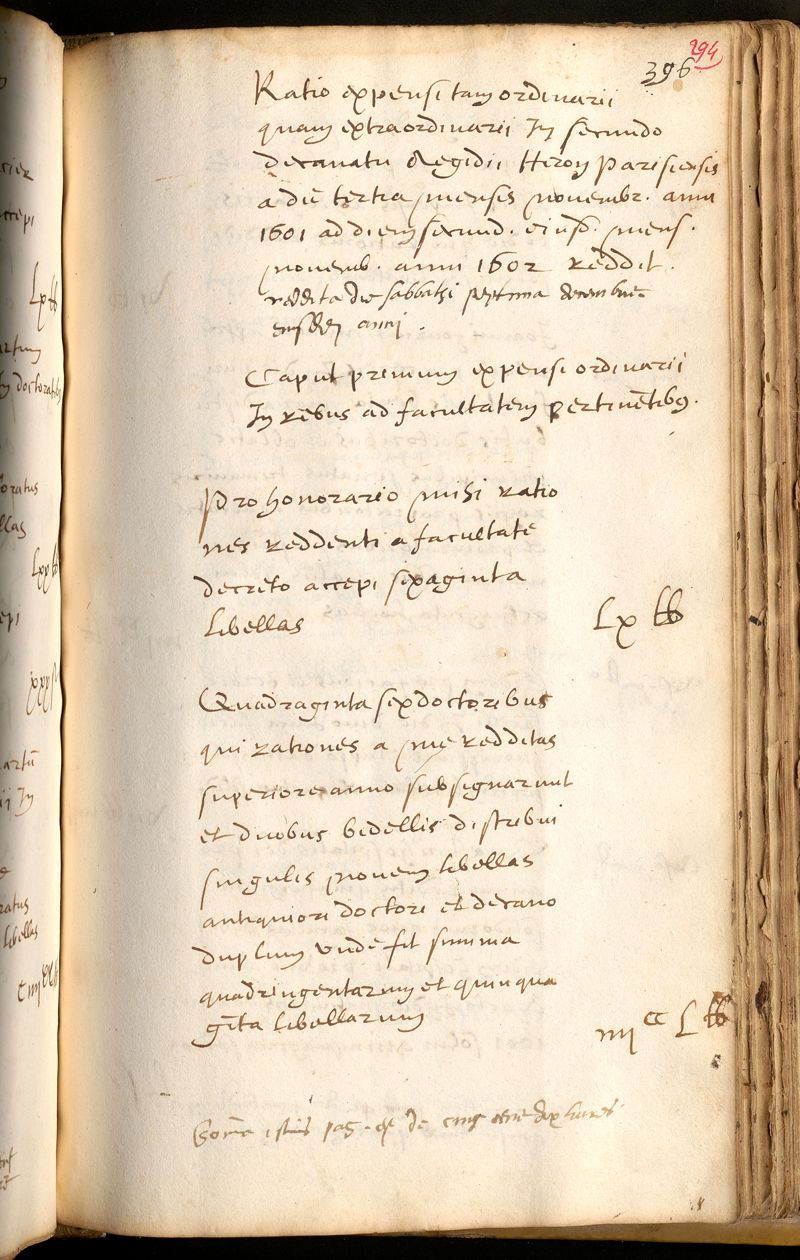 294
396
Ratio expensi tam ordinarii
quam extraordinarii In secundo
decanatu Ægidii Heron Parisiensis
a die tertia mensis novembr. anni
1601 ad diem secund. eiusd. mens.
novemb. anni 1602 reddit.
reddita die sabbathi septima decembris
eiusdem anni.
Caput primum expensi ordinarii
In rebus ad facultatem pertinētibus.
Pro honorario mihi ratio
nes reddenti a facultate
decreto accepi sexaginta
libellas
Lx lb
Quadraginta sex doctoribus
qui rationes a me redditas
superiore anno subsignarunt
et duobus bedellis distribui
singulis novem libellas
antiquiori doctori et decano
duplum unde fit summa
quadringentarum et quinqua
gīta libellarum
iiijcc L lb
Soma istius pag. est de